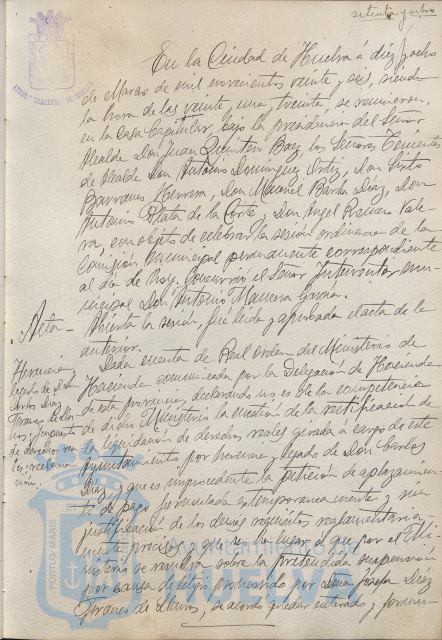 setenta y ocho
En la Ciudad de Huelva á diez y ocho
de Marzo de mil novecientos veinte y seis, siendo
la hora de las veinte, una, treinta, se reunieron,
en la Casa Capitular, bajo la presidencia del Señor
Alcalde Don Juan Quintero Baez, los Señores Tenientes
de Alcalde Don Antonio Dominguez Ortiz, Don Sixto
Barranco Herrera, Don Manuel Barba Diaz, Don
Antonio Plata de la Corte y Don Angel Romero Tale-
ra, con objeto de celebrar la sesión ordinaria de la
Comisión municipal permanente correspondiente
al día de hoy. Concurrió el Señor Interventor mu-
nicipal Don Antonio García.
Acta – Abierta la sesión, fué leída y aprobada el acta de la
anterior.
Herencia y
legado de Don
Carlos Diaz
impuesto
de derechos rea
les; reclama
ción.
Dada cuenta de Real Orden del Ministerio de
Hacienda comunicada por la Delegación de Hacienda
de esta provincia, declarando no es de la competencia
de dicho Ministerio la cuestión de la rectificación de
la liquidación de derechos reales girada á cargo de este
Ayuntamiento por herencia y legado de Don Carlos
Diaz, y que es improcedente la petición de aplazamien-
to de pago formulada extemporaneamente y sin
justificación de los demás requisitos reglamentaria
mente precisos, y que no ha lugar á que por el Mi-
nisterio se resuelva sobre la pretendida suspensión
por causa de litigio promovido por Doña Josefa Diaz
Franco de Llanos, se acordó quedar enterado y
PORTUS MARIS
Ayuntamiento de
HUELVA